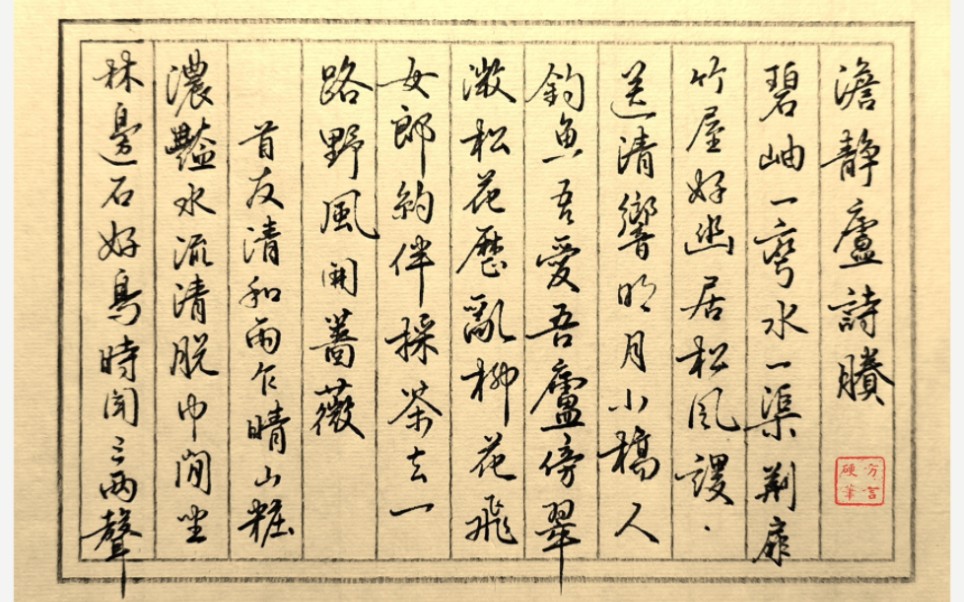 澹静廬詩賸
碧岫一彎水一渠荆扉
竹屋好幽居松風謖·
送清響明月小橋人
釣魚吾愛吾廬傍翠
溦松花歷亂柳花飛
女郎約伴採茶去一
路野風開薔薇
首夏清和雨乍晴山粧
濃豔水流清脱巾閒坐
林邊石好鳥時聞三兩聲
方言
硬筆